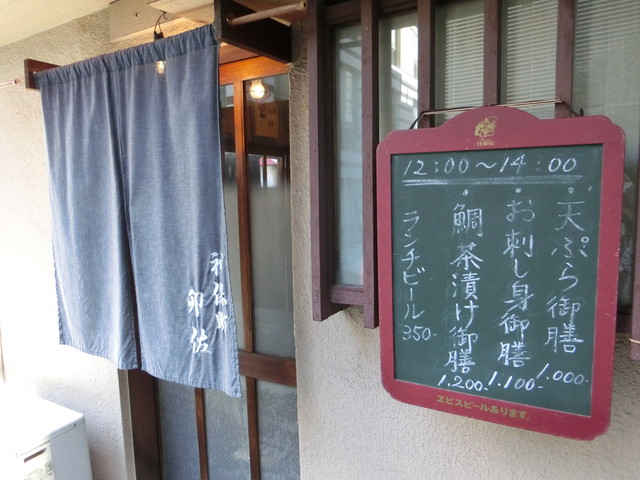 YEBISU
12:00〜14:00
・天ぷら御膳 1.000-
・お刺し身御膳 1.100-
・鯛茶漬け御膳 1.200-
ランチビール 350-
ヱビスビールあります。
卯佐